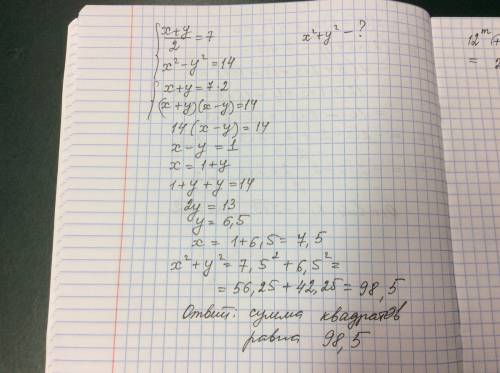 x+y/2 = 7      x² + y² – ?
x² – y² = 14
x + y = 7·2
(x+y)(x–y) = 14
14(x–y) = 14
x – y = 1
x = 1 + y
1 + y + y = 14
2y = 13
y = 6,5
x = 1 + 6,5 = 7,5
x² + y² = 7,5² + 6,5² =
= 56,25 + 42,25 = 98,5
Ответ: сумма квадратов
равна 98,5
12ᵐ
=